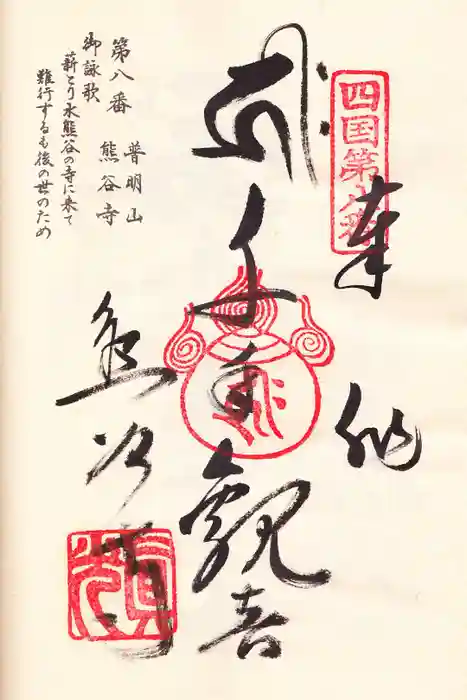 四国第八番
奉
納
千手観音
熊谷寺
第八番 普明山
熊谷寺
御詠歌
薪とり水熊谷の寺に来て
難行するも後の世のため